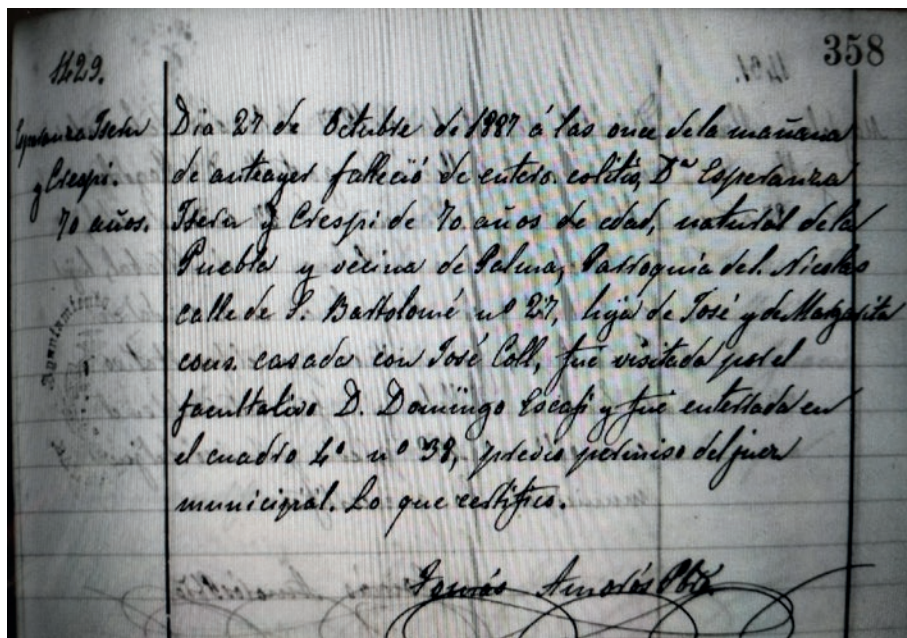 358
1429.
Esperanza Isern
y Crespi.
70 años.
Dia 27 de Octubre de 1887 á las once de la mañana
de anteayer falleció de entero colitis, Dª Esperanza
Isern y Crespi de 70 años de edad, natural de la
Puebla y vecina de Palma, Parroquia de S. Nicolas
calle de S. Bartolomé nº 27, hija de José y de Margarita
cons. casada con José Coll, fue visitada por el
facultativo D. Domingo Escafi y fué enterrada en
el cuadro 4º nº 38, previo permiso del juez
municipal. Lo que certifico.
Amorós Pbro
Ayuntamiento